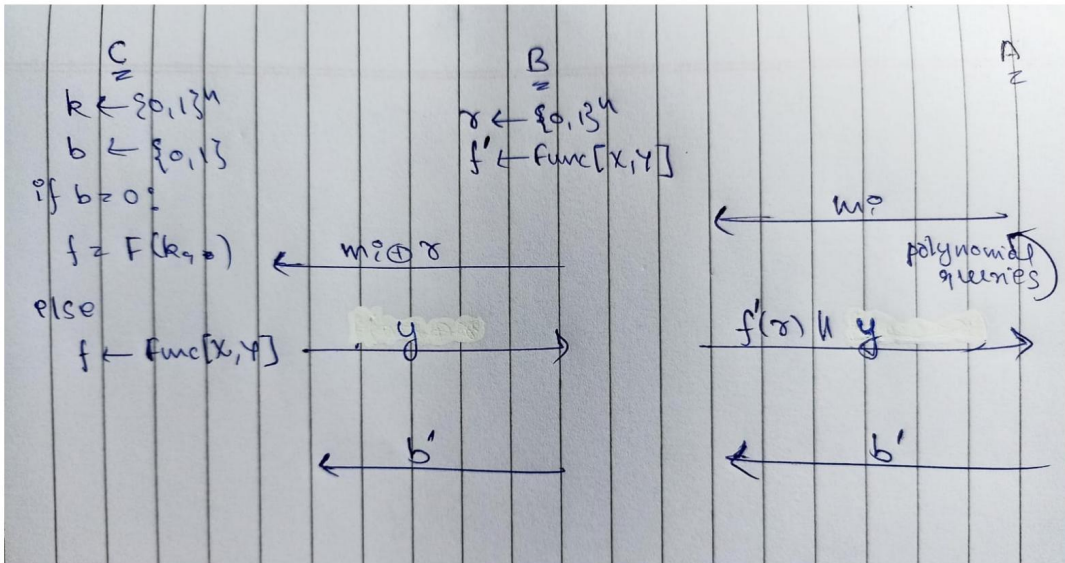 C
k ← {0,1}ⁿ
b ← {0,1}
if b = 0:
f = F(k, ·)
else
f ← Func[X,Y]
B
r ← {0,1}ⁿ
f' ← Func[X,Y]
A
mi
polynomial
queries
mi ⊕ r
y
f'(r) || y
b'
b'